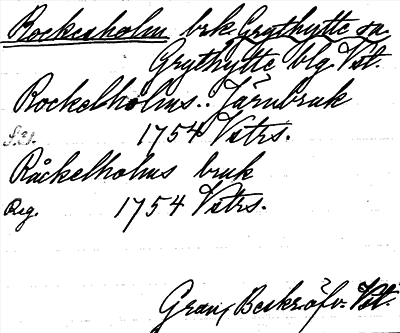 Rockesholm brk Grythytte sn
Grythytte blg Vst.
Rockelholms.. Järnbruk
S. 21. 1754 Vstrs.
Råckelholms bruk
Reg. 1754 Vstrs.
Grau, Beskrifv. Vst.